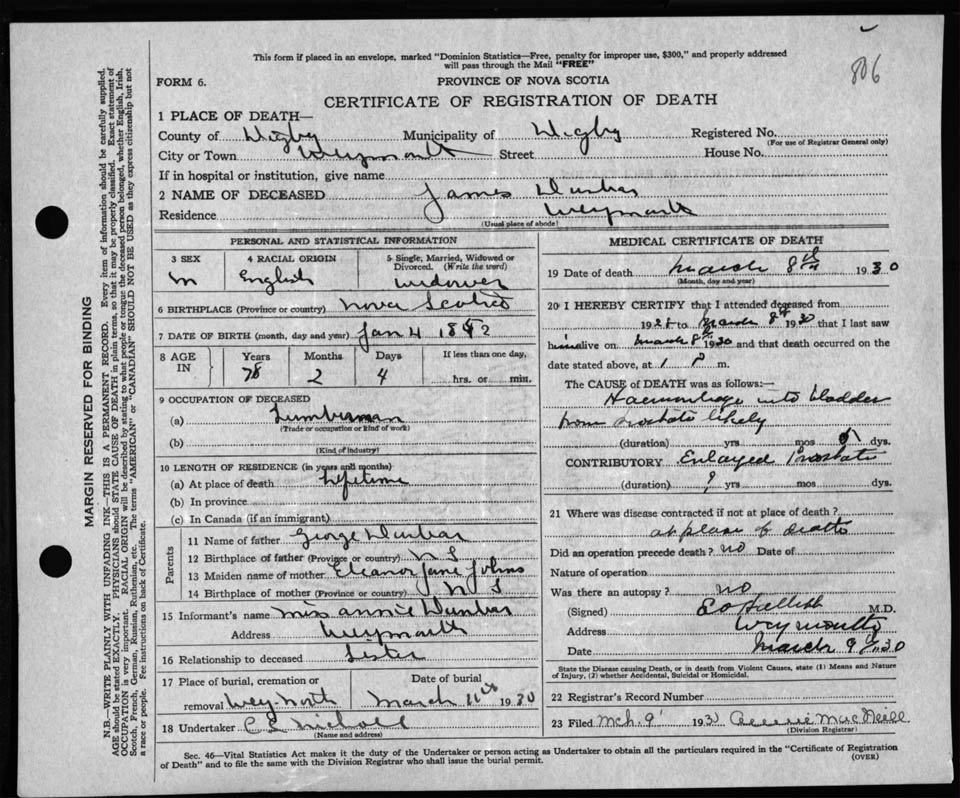 806
This form if placed in an envelope, marked "Dominion Statistics—Free, penalty for improper use, $300," and properly addressed
will pass through the Mail "FREE"
FORM 6.
PROVINCE OF NOVA SCOTIA
CERTIFICATE OF REGISTRATION OF DEATH
1 PLACE OF DEATH—
County of Digby Municipality of Digby Registered No.
(For use of Registrar General only)
City or Town Weymouth Street House No.
If in hospital or institution, give name
2 NAME OF DECEASED James Dunbar
Residence Weymouth
(Usual place of abode)
PERSONAL AND STATISTICAL INFORMATION
3 SEX 4 RACIAL ORIGIN 5 Single, Married, Widowed or
Divorced. (Write the word)
M English widower
6 BIRTHPLACE (Province or country) Nova Scotia
7 DATE OF BIRTH (month, day and year) Jan 4 1852
8 AGE IN Years Months Days If less than one day,
78 2 4 hrs. or min.
9 OCCUPATION OF DECEASED
(a) Lumberman
(Trade or occupation or kind of work)
(b)
(Kind of industry)
10 LENGTH OF RESIDENCE (in years and months)
(a) At place of death lifetime
(b) In province
(c) In Canada (if an immigrant)
Parents
11 Name of father George Dunbar
12 Birthplace of father (Province or country) N S
13 Maiden name of mother Eleanor Jane Johns
14 Birthplace of mother (Province or country) N S
15 Informant's name Miss Annie Dunbar
Address Weymouth
16 Relationship to deceased Sister
17 Place of burial, cremation or Date of burial
removal Wey. North March 11th 1930
18 Undertaker
(Name and address)
MEDICAL CERTIFICATE OF DEATH
19 Date of death March 8th 1930
(Month, day and year)
20 I HEREBY CERTIFY that I attended deceased from
to March 8th 1930 that I last saw
him alive on March 8th 1930 and that death occurred on the
date stated above, at 1 P m.
The CAUSE of DEATH was as follows:—
Haemorrhage into bladder
from prostate likely
(duration) yrs mos dys.
CONTRIBUTORY Enlarged Prostate
(duration) ? yrs mos dys.
21 Where was disease contracted if not at place of death?
at place of death
Did an operation precede death? no Date of
Nature of operation
Was there an autopsy? no
(Signed) M.D.
Address Weymouth
Date March 9th 30
State the Disease causing Death, or in death from Violent Causes, state (1) Means and Nature
of Injury, (2) whether Accidental, Suicidal or Homicidal.
22 Registrar's Record Number
23 Filed Mch. 9 193 MacNeill
(Division Registrar)
Sec. 46—Vital Statistics Act makes it the duty of the Undertaker or person acting as Undertaker to obtain all the particulars required in the "Certificate of Registration
of Death" and to file the same with the Division Registrar who shall issue the burial permit.
(OVER)
MARGIN RESERVED FOR BINDING
N.B.—WRITE PLAINLY WITH UNFADING INK—THIS IS A PERMANENT RECORD. Every item of information should be carefully supplied.
AGE should be stated EXACTLY. PHYSICIANS should STATE CAUSE OF DEATH in plain terms, so that it may be properly classified. Exact statement of
OCCUPATION is very important. RACIAL ORIGIN will be described by stating to what people or tongue the deceased person belonged, whether English, Irish,
Scotch, French, German, Russian, Ruthenian, etc. The terms "AMERICAN" or "CANADIAN" SHOULD NOT BE USED as they express citizenship but not
a race or people. See instructions on back of Certificate.